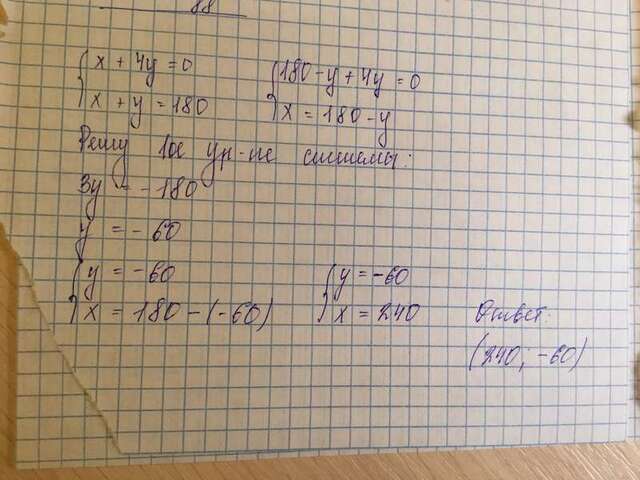 88
{ x + 4y = 0 { 180 - y + 4y = 0
{ x + y = 180 { x = 180 - y
Решу 1ое ур-ие системы:
3y = -180
y = -60
{ y = -60 { y = -60
{ x = 180 - (-60) { x = 240 Ответ:
(240; -60)